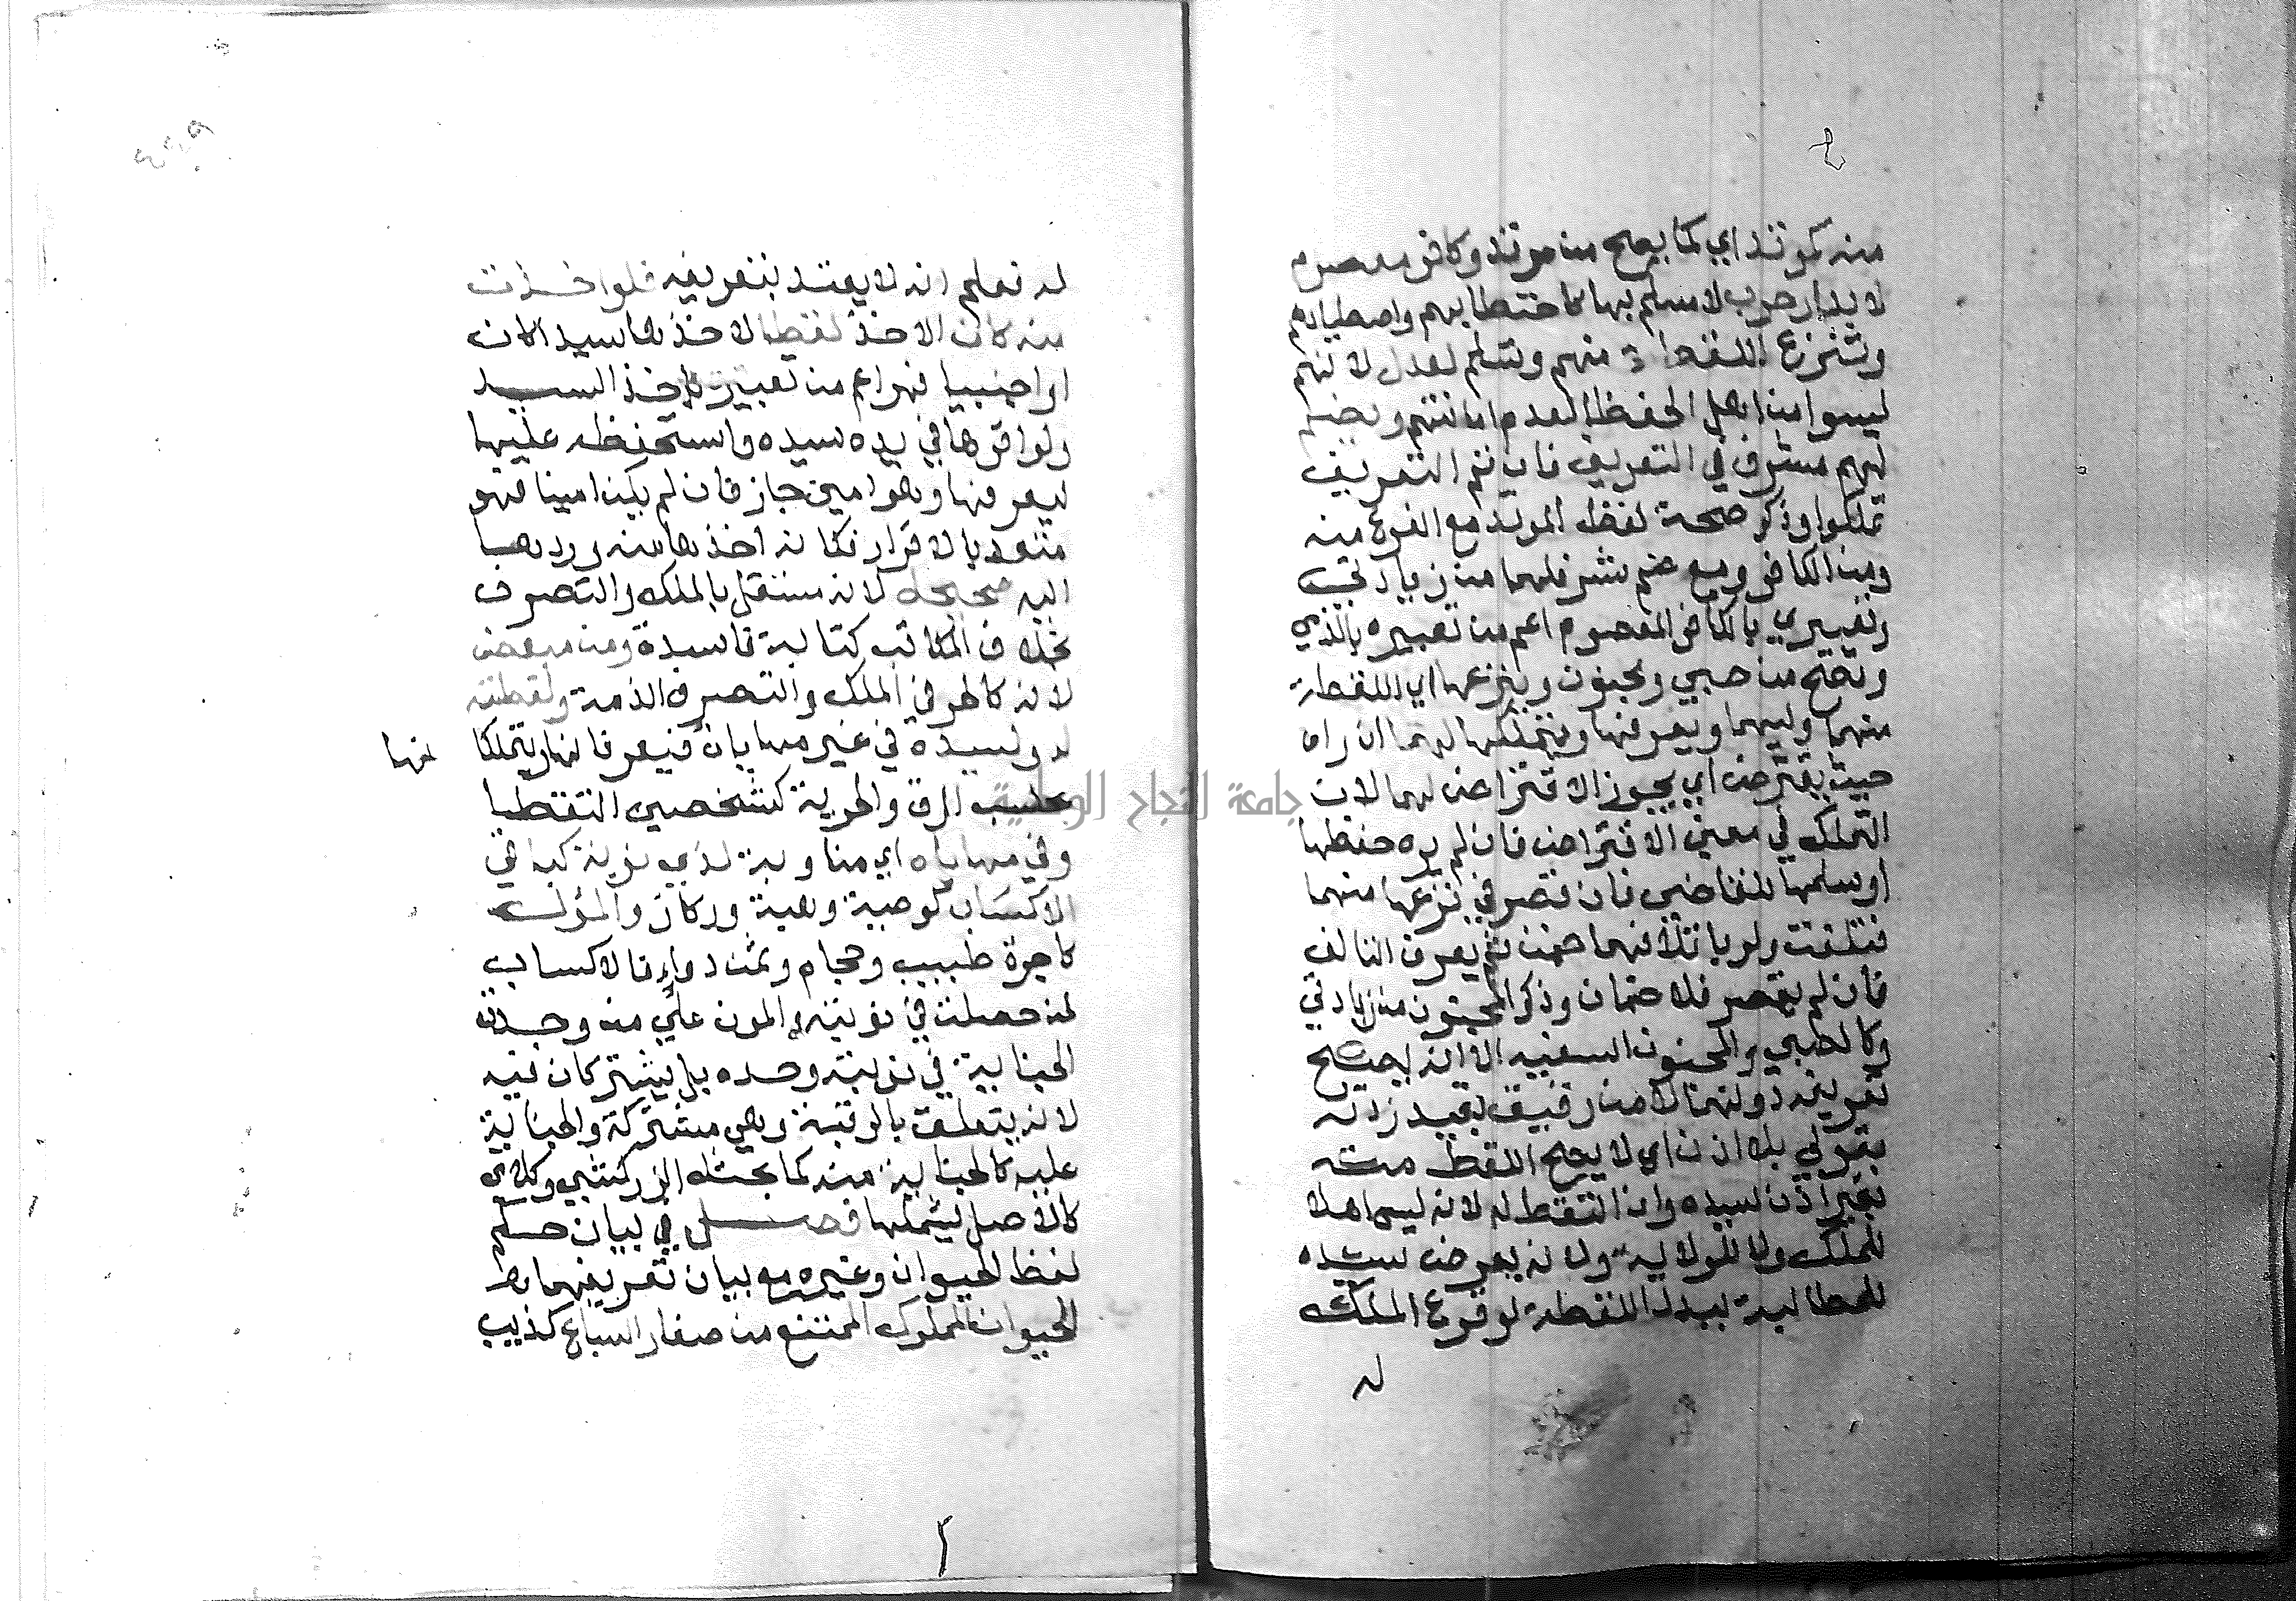 منه كمرتد اي كما يصح من مرتد وكافر معصوم
لا بدار حرب لا مسلم بها كاحتطابهم واصطيادهم
وتنزع اللقطة منهم وتسلم لعدل لانهم
ليسوا من اهل الحفظ لعدم امانتهم ويضم
لهم مشرف في التعريف فان تم التعريف
تملكوا وذكر صحة لقط المرتد مع النزع منه
ومن الكافر ومع ضم مشرف لهما من زيادتي
وتعبيري بالكافر المعصوم اعم من تعبيره بالذمي
وتصح من صبي ومجنون وينزعها اي اللقطة
منهما وليهما ويعرفها ويتملكها لهما ان راه
حيث يقترض اي يجوز الاقتراض لهما لان
التملك في معنى الاقتراض فان لم يره حفظها
او سلمها للقاضي فان قصر في نزعها منهما
فتلفت ولو باتلافهما ضمن ثم يعرف التالف
فان لم يقصر فلا ضمان وذكر المجنون من زيادتي
وكالصبي والمجنون السفيه الا انه يصح
تعريفه دونهما لا من رقيق بقيد زدته
بقولي بلا اذن اي لا يصح اللقط منه
بغير اذن لسيده وان التقط له لانه ليس اهلا
للملك ولا للولاية ولانه يعرض سيده
للمطالبة ببدل اللقطة لوقوع الملك
له
له فعلم انه لا يعتد بتعريفه فلو اخذت
منه كان الاخذ لقيطا لاخذها سيدا كان
او اجنبيا فهو اعم من تعبيره باخذ السيد
ولو اقرها في يده سيده واستحفظه عليها
ليعرفها وهو امين جاز فان لم يكن امينا فهو
متعد بالاقرار فكانه اخذها منه وردها
اليه صحيحة لانه مستقل بالملك والتصرف
بخلاف المكاتب كتابة فاسدة ومن مبعض
لانه كالحر في الملك والتصرف الذمة ولقطته
له ولسيده في غير مهاياة فيعرفانها ويتملكا
نها
بحسب الرق والحرية كشخصين التقطا
وفي مهاياه اي مناوبة لذي نوبة كباقي
الاكساب كوصية وهبة وركاز والمؤن
كاجرة طبيب وحجام وثمن دواء فالاكساب
لمن حصلت في نوبته والمون على من وجد
الجناية في نوبته وحده بل يشتركان فيه
لانه يتعلق بالرقبة وهي مشتركة والجناية
عليه كالجناية منه كما بحثه الزركشي وكلامي
كالاصل يشملها فصل في بيان حكم
لقط الحيوان وغيره مع بيان تعريفهما
الحيوان المملوك الممتنع من صغار السباع كذيب
جامعة النجاح الوطنية